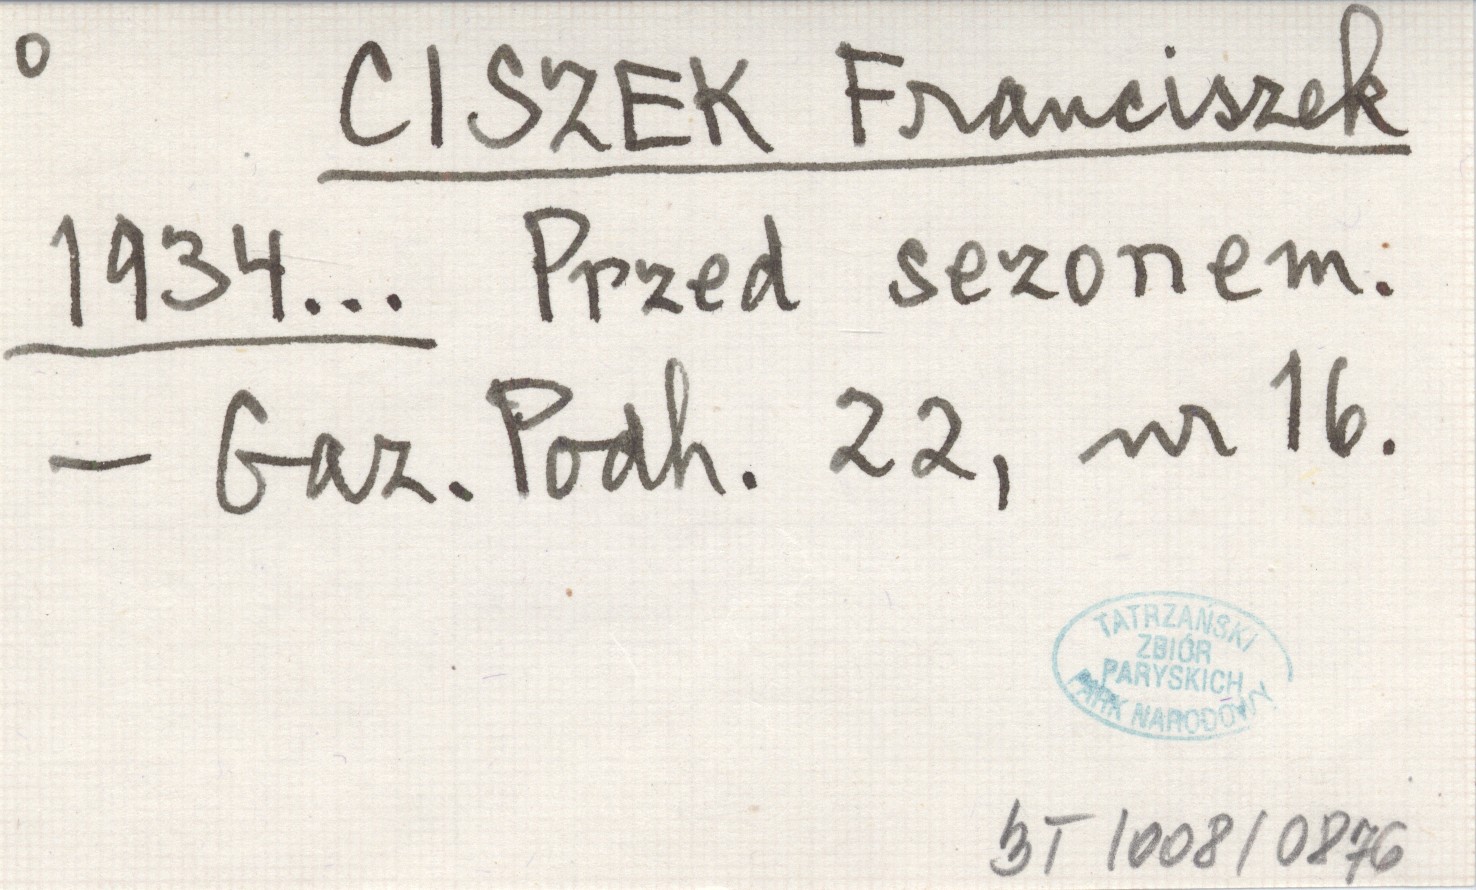 o CISZEK Franciszek
1934... Przed sezonem.
— Gaz. Podh. 22, nr 16.
TATRZAŃSKI
ZBIÓR
PARYSKICH
PARK NARODOWY
BT 1008/0876